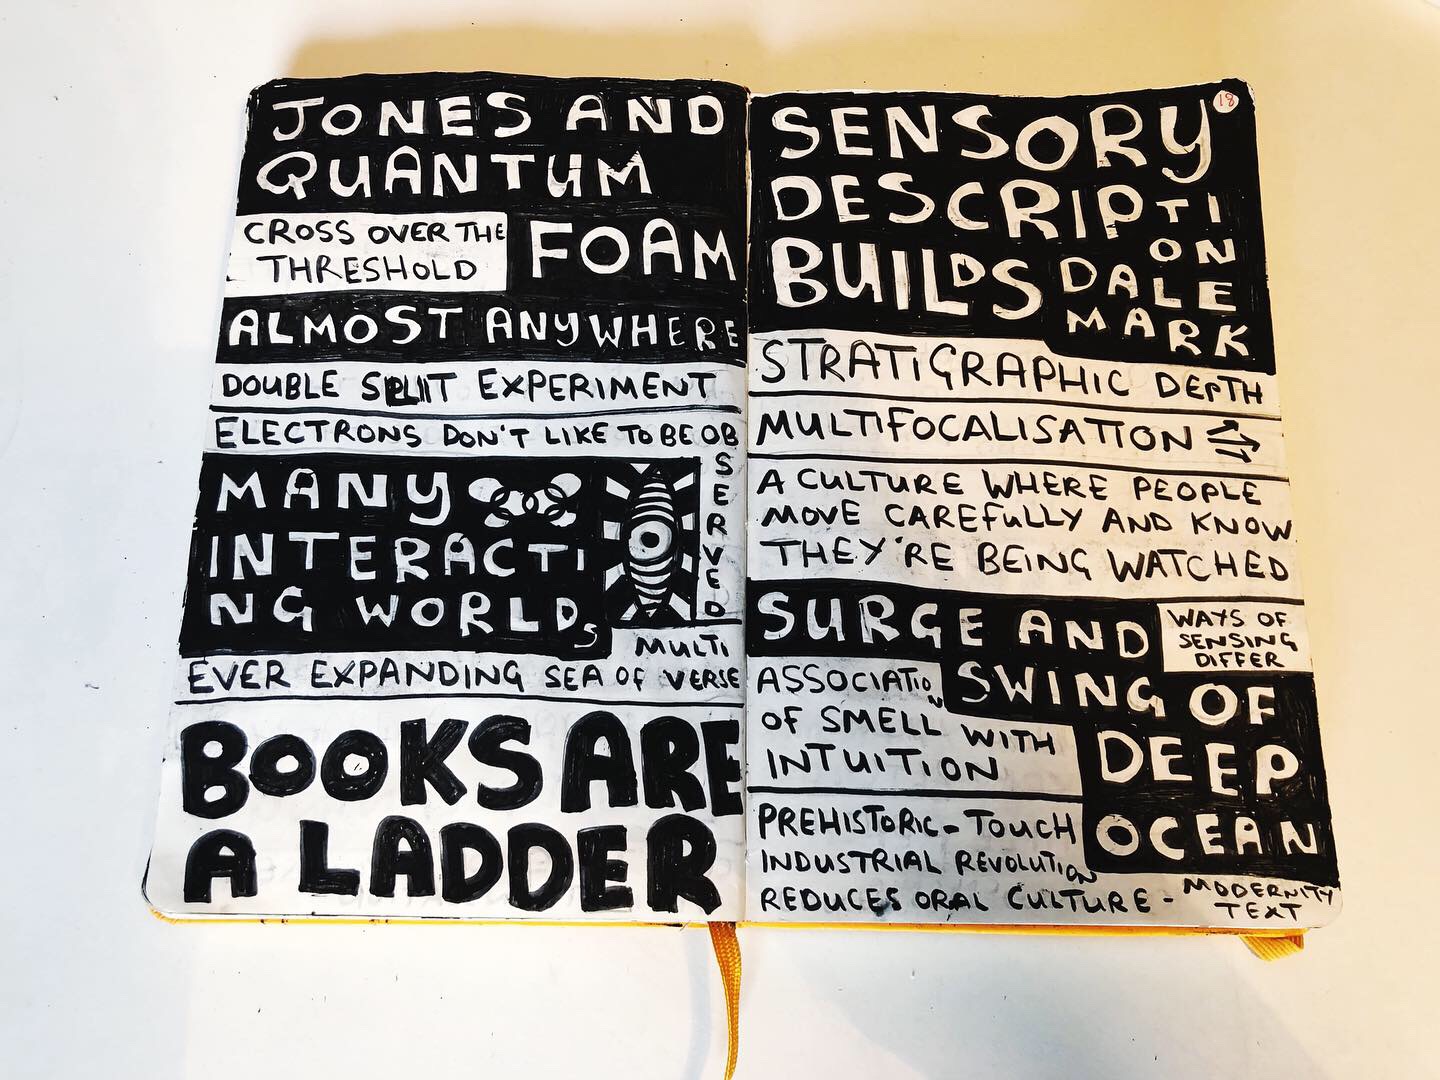 JONES AND
QUANTUM
FOAM
CROSS OVER THE
THRESHOLD
ALMOST ANYWHERE
DOUBLE SPLIT EXPERIMENT
ELECTRONS DON'T LIKE TO BE OB
SERVED
MANY
INTERACTI
NG WORLDS
MULTI
EVER EXPANDING SEA OF VERSE
BOOKS ARE
A LADDER
18
SENSORY
DESCRIPTI
ON
BUILDS DALE
MARK
STRATIGRAPHIC DEPTH
MULTIFOCALISATION
A CULTURE WHERE PEOPLE
MOVE CAREFULLY AND KNOW
THEY'RE BEING WATCHED
SURGE AND
SWING OF
DEEP
OCEAN
WAYS OF
SENSING
DIFFER
ASSOCIATION
OF SMELL WITH
INTUITION
PREHISTORIC - TOUCH
INDUSTRIAL REVOLUTION
REDUCES ORAL CULTURE -
MODERNITY
TEXT